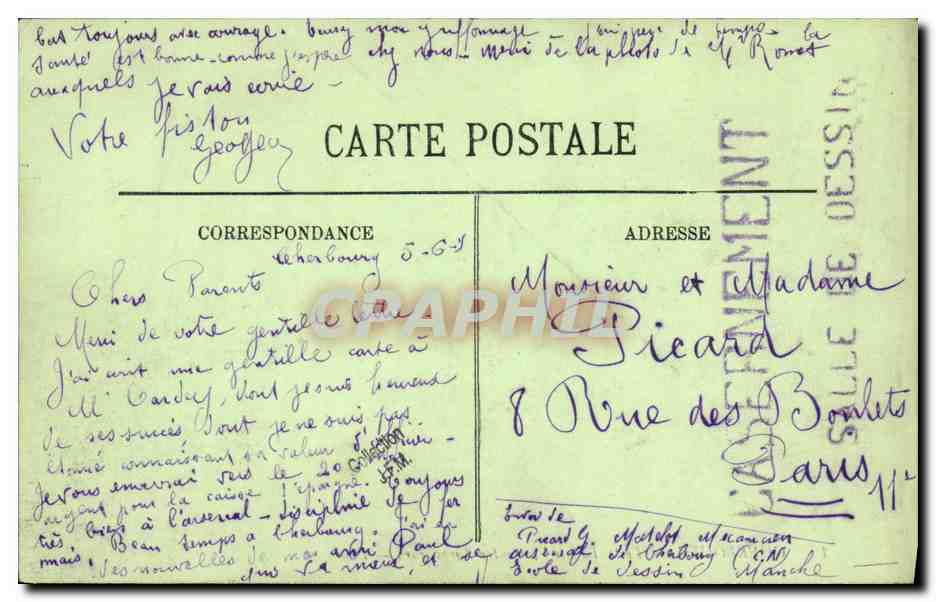 bat toujours avec courage. mon griffonnage un peu de temps - la
santé est bonne - comme j'espère chez vous - Merci de la photo de Mr
auxquels je vais écrire -
Votre fiston
Georges
CARTE POSTALE
CORRESPONDANCE
Cherbourg 5-6-
Chers Parents
Merci de votre gentille lettre
J'ai écrit une gentille carte à
Mr dont je suis heureux
de ses succès, dont je ne suis pas
étonné connaissant sa valeur
Je vous enverrai vers le 20
argent pour la caisse d'épargne. Toujours
très bien à l'arsenal - discipline de fer
mais. Beau temps à Cherbourg. J'ai
des nouvelles de mon ami Paul
qui va mieux, et se
Collection
J.F.M.
CPAPHIL
ADRESSE
Monsieur et Madame
Picard
8 Rue des Boulets
Paris 11e
Envoi de
Picard G. Matelot Mécanicien
arsenal de Cherbourg
École de dessin Manche
L'ARGENEMENT
SALLE DE DESSIN